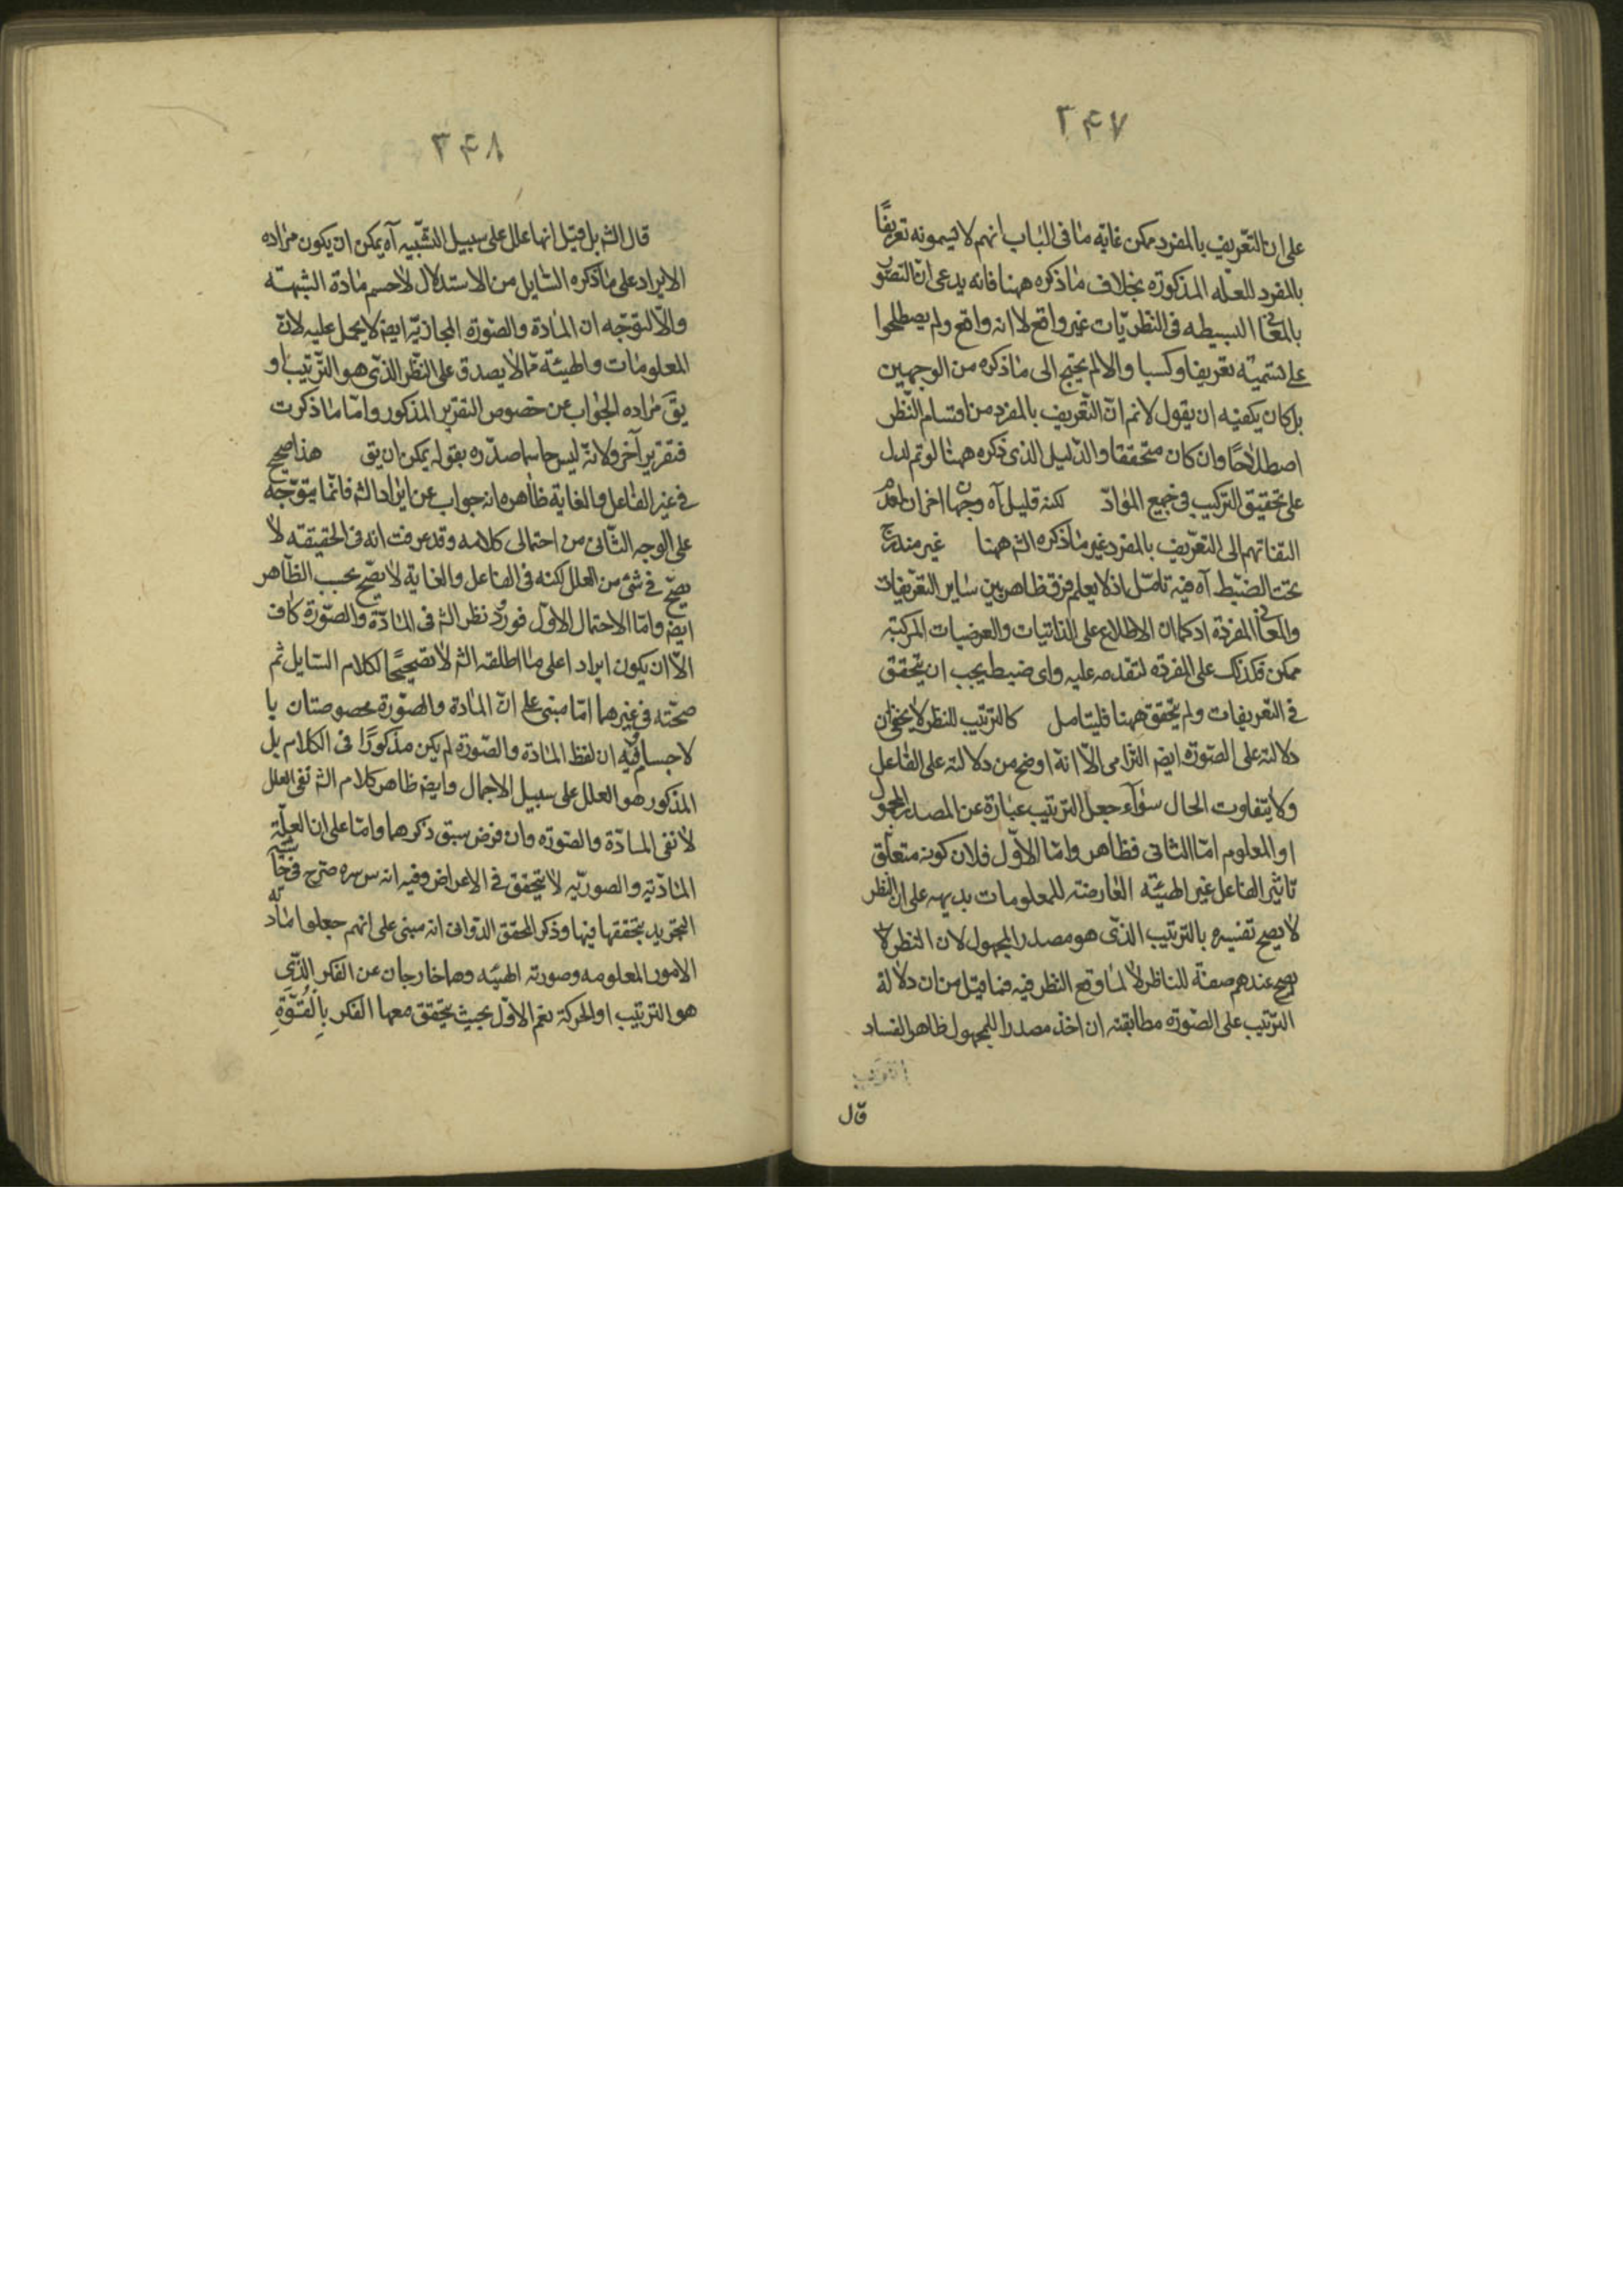 ٣٤٧
على ان التعريف بالمفرد ممكن غاية ما فى الباب انهم لا يسمونه تعريفًا
بالمفرد للعلّه المذكورة بخلاف ما ذكره ههنا فانه يدعى انّ التصوّر
بالمعانى البسيطه فى النظريّات غير واقع لا انه واقع ولم يصطلحوا
على تسميته تعريفا وكسبا والا لم يحتج الى ما ذكره من الوجهين
بل كان يكفيه ان يقول لانم انّ التّعريف بالمفرد من اقسام النّظر
اصطلاحًا وان كان متحققا والدّليل الذى ذكره ههنا لو تم لدل
على تحقيق التركيب فى جميع الموادّ لكنه قليل آه وجهان اخران لعدم
التفاتهم الى التعرّيف بالمفرد غير ما ذكره الشم ههنا غير مندرج
تحت الضّبط آه فيه تامّل اذ لا يعلم فرق ظاهر بين ساير التعرّيفات
والمعانى المفردة اذ كما ان الاطلاع على الذاتيات والعرضيات المركبة
ممكن فكذلك على المفردة لتقدمه عليه واى ضبط يجب ان يتحقق
فى التعريفات ولم يتحقق ههنا فليتامل كالترتيب للنظر لا يخفى ان
دلالته على الصّورة ايضا التزامى الّا انّه اوضح من دلالته على الفاعل
ولا يتفاوت الحال سوآء جعل الترتيب عبارة عن المصدر المجهول
او المعلوم امّا الثانى فظاهر وامّا الاوّل فلان كونه متعلّق
تاثير الفاعل غير الهيئة العارضة للمعلومات بديهه على ان النظر
لا يصح تفسيره بالترتيب الذّى هو مصدر المجهول لان النظر لا
يصح عندهم صفة للناظر لا لما وقع النظر فيه فما قيل من ان دلالة
الترّتيب على الصّورة مطابقته ان اخذ مصدرا للمجهول ظاهر الفساد
قال
٣٤٨
قال الشم بل قيل انها علل على سبيل التشبيه آه يمكن ان يكون مراده
الايراد على ما ذكره السّايل من الاستدلال لا حسم مادة الشبهة
والّا لتوجّه ان المادة والصّورة المجازيّه ايضا لا يحمل عليه لانّ
المعلومات والهيئة ممّا لا يصدق على النّظر الذّى هو الترّتيب او
يقّ مراده الجواب عن خصوص التقرير المذكور وامّا ما ذكرت
فتقرير آخر ولانّه ليس حاسما صدّره بقوله يمكن ان يق هذا صحيح
فى غير الفاعل والغاية ظاهره انه جواب عن ايراد الشم فانّما يتوّجه
على الوجه الثّانى من احتمالى كلامه وقد عرفت انه فى الحقيقة لا
يصحّ فى شئ من العلل لكنه فى الفاعل والغاية لا يصّح بحسب الظّاهر
ايضا وامّا الاحتمال الاوّل فورود نظر الشم فى المادّة والصّورة كاف
الّا ان يكون ايرادا على ما اطلقه الشم لا تصحيحًا لكلام السّايل ثم
صحّته فى غيرهما امّا مبنى على انّ المادة والصّورة مخصوصتان با
لاجسام وفيه ان لفظ المادة والصّورة لم يكن مذكورًا فى الكلام بل
المذكور هو العلل على سبيل الاجمال وايضا ظاهر كلام الشم نفى العلل
لا نفى المادّة والصّورة وان فرض سبق ذكرهما وامّا على ان العلّة
المادّية والصوريّه لا يتحقق فى الاعراض وفيه انه س سره صّرح فى حاشية
التجريد بتحققها فيها وذكر المحقق الدّوانى انه مبنى على انهم جعلوا مادّته
الامور المعلومه وصورته الهيئه وهما خارجان عن الفكر الذّى
هو الترتيب او الحركة نعم الاوّل بحيث يتحقق معها الفكر بِالْقُوَّةِ